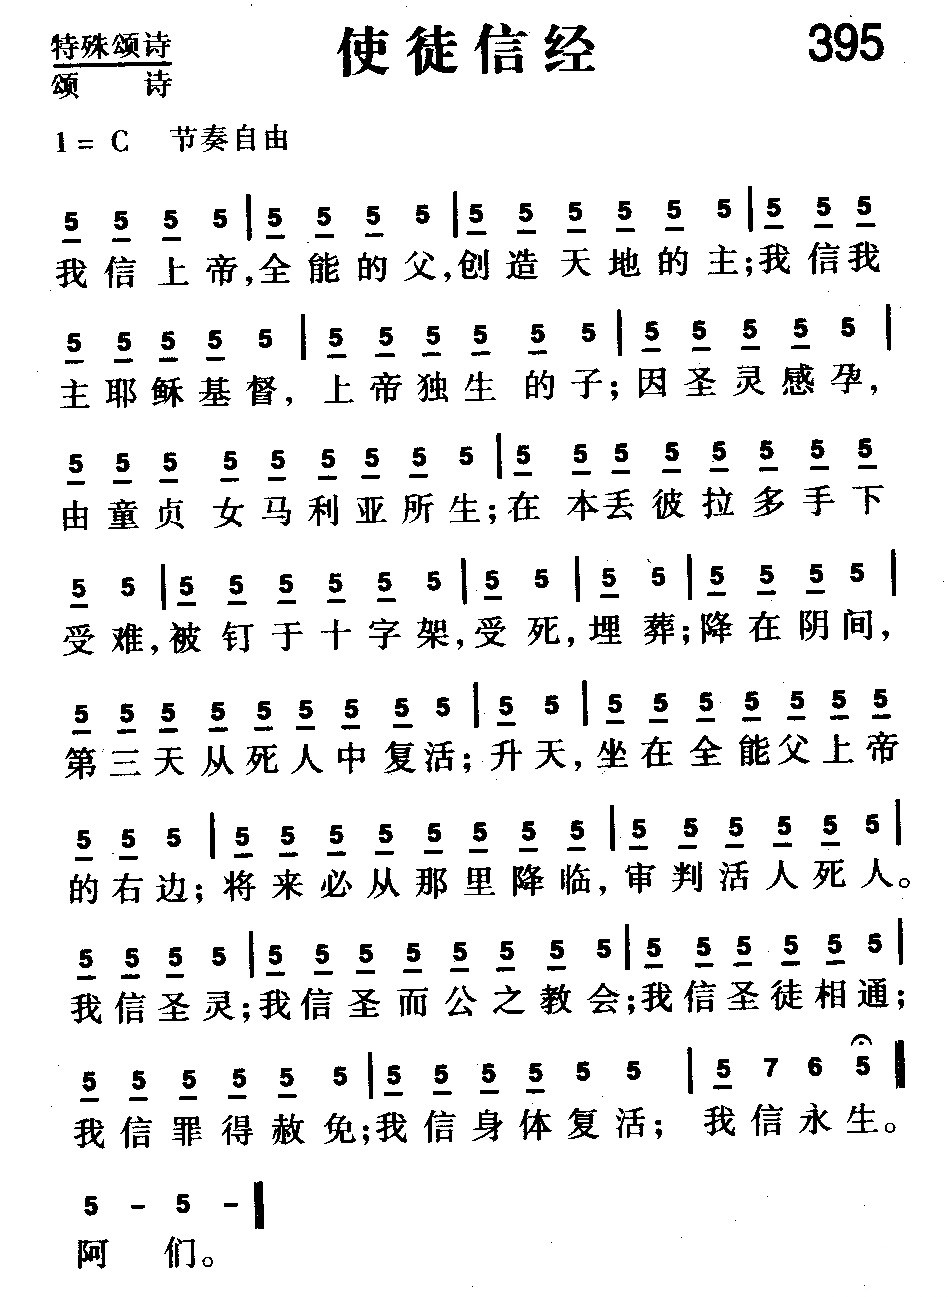 特殊颂诗 使徒信经 395
颂 诗
1 = C 节奏自由
5 5 5 5 | 5 5 5 5 | 5 5 5 5 5 5 | 5 5 5
我信上帝,全能的父,创造天地的主;我信我
5 5 5 5 5 | 5 5 5 5 5 5 | 5 5 5 5 5 |
主耶稣基督,上帝独生的子;因圣灵感孕,
5 5 5 5 5 5 5 5 5 | 5 5 5 5 5 5 5 5
由童贞女马利亚所生;在本丢彼拉多手下
5 5 | 5 5 5 5 5 5 | 5 5 | 5 5 | 5 5 5 5 |
受难,被钉于十字架,受死,埋葬;降在阴间,
5 5 5 5 5 5 5 5 5 | 5 5 | 5 5 5 5 5 5 5
第三天从死人中复活;升天,坐在全能父上帝
5 5 5 | 5 5 5 5 5 5 5 5 | 5 5 5 5 5 5 |
的右边;将来必从那里降临,审判活人死人。
5 5 5 5 | 5 5 5 5 5 5 5 5 | 5 5 5 5 5 5 |
我信圣灵;我信圣而公之教会;我信圣徒相通;
5 5 5 5 5 5 | 5 5 5 5 5 5 | 5 7 6 5 |
我信罪得赦免;我信身体复活;我信永生。
5 – 5 – |
阿 们。